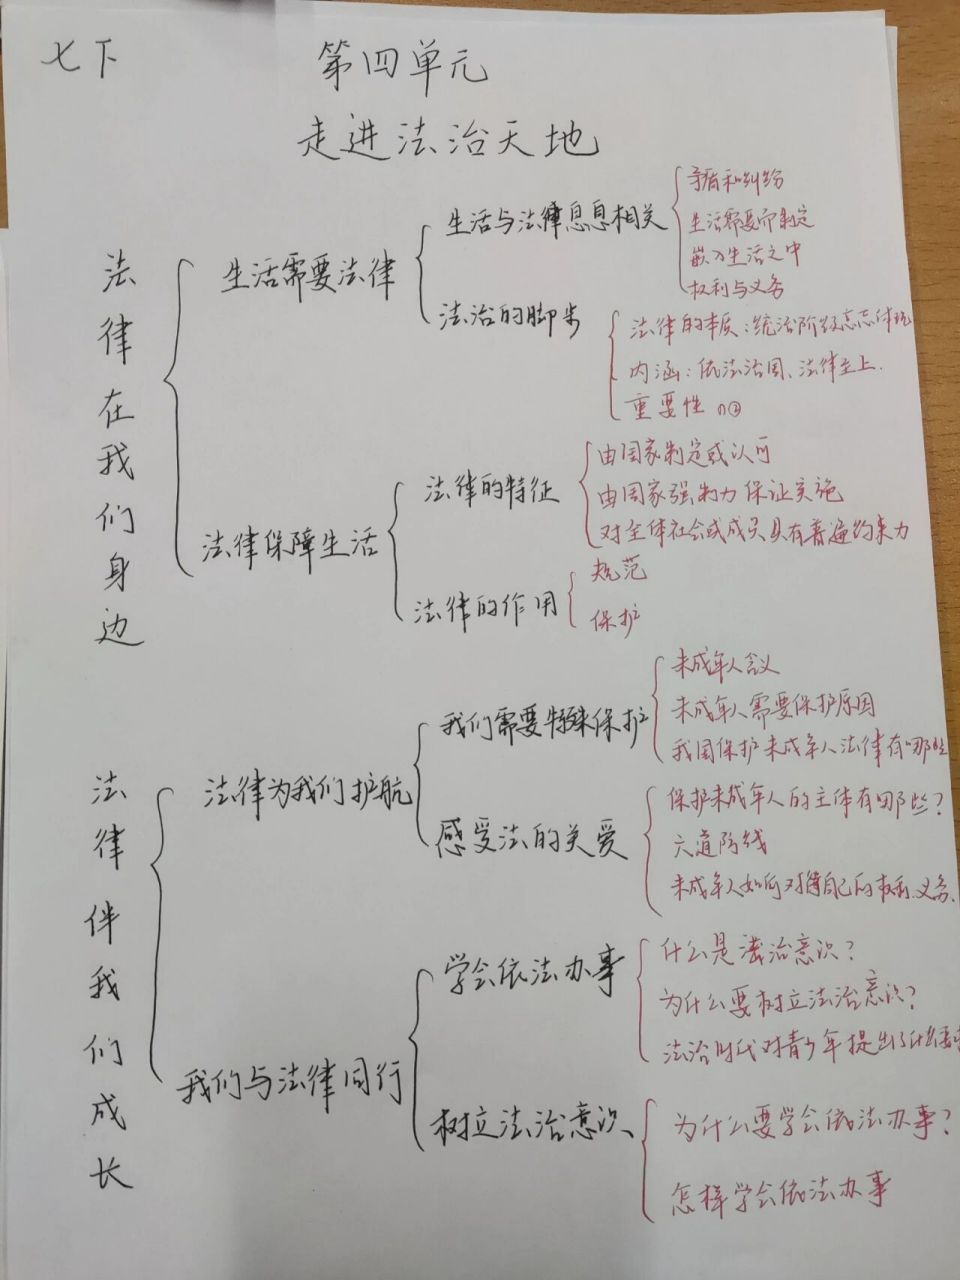 七下
第四单元
走进法治天地
法律在我们身边
生活需要法律
生活与法律息息相关
矛盾和纠纷
生活需要而制定
嵌入生活之中
权利与义务
法治的脚步
法律的本质：统治阶级意志体现
内涵：依法治国、法律至上.
重要性
法律保障生活
法律的特征
由国家制定或认可
由国家强制力保证实施
对全体社会成员具有普遍约束力
法律的作用
规范
保护
法律伴我们成长
法律为我们护航
我们需要特殊保护
未成年人含义
未成年人需要保护原因
我国保护未成年人法律有哪些
感受法的关爱
保护未成年人的主体有哪些？
六道防线
未成年人如何对待自己的权利、义务、
我们与法律同行
学会依法办事
什么是法治意识？
为什么要树立法治意识？
法治时代对青少年提出了什么要求
树立法治意识、
为什么要学会依法办事？
怎样学会依法办事